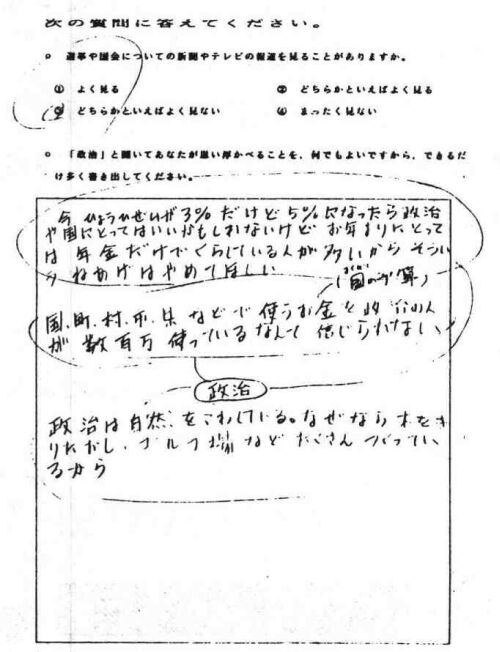 次の質問に答えてください。
○ 選挙や国会についての新聞やテレビの報道を見ることがありますか。
① よく見る ② どちらかといえばよく見る
③ どちらかといえばよく見ない ④ まったく見ない
○ 「政治」と聞いてあなたが思い浮かべることを、何でもよいですから、できるだ
け多く書き出してください。
今 ひょうひぜいが3%だけど5%になったら政治
や国にとってはいいかもしれないけど お年よりにとって
は 年金だけでくらしている人が多いから そういう
ねあげはやめてほしい
(国の予算)
国、町、村、市、県などで使うお金を政治の人
が数百万 使っているなんて信じられない、
政治
政治は自然をこわしている。なぜなら木をき
りたおし、ゴルフ場などたくさんつくってい
るから